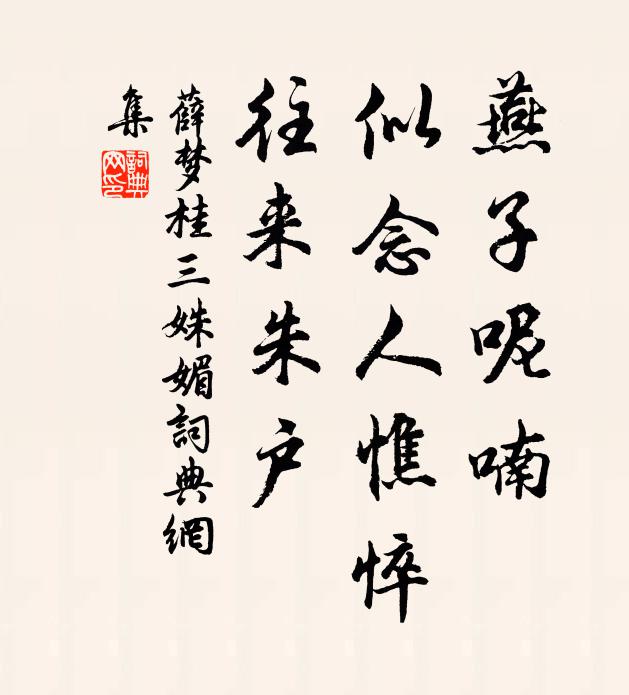 燕子呢喃
似念人憔悴
往来朱户
薛梦桂三姝媚詞典網
集
詞典網印